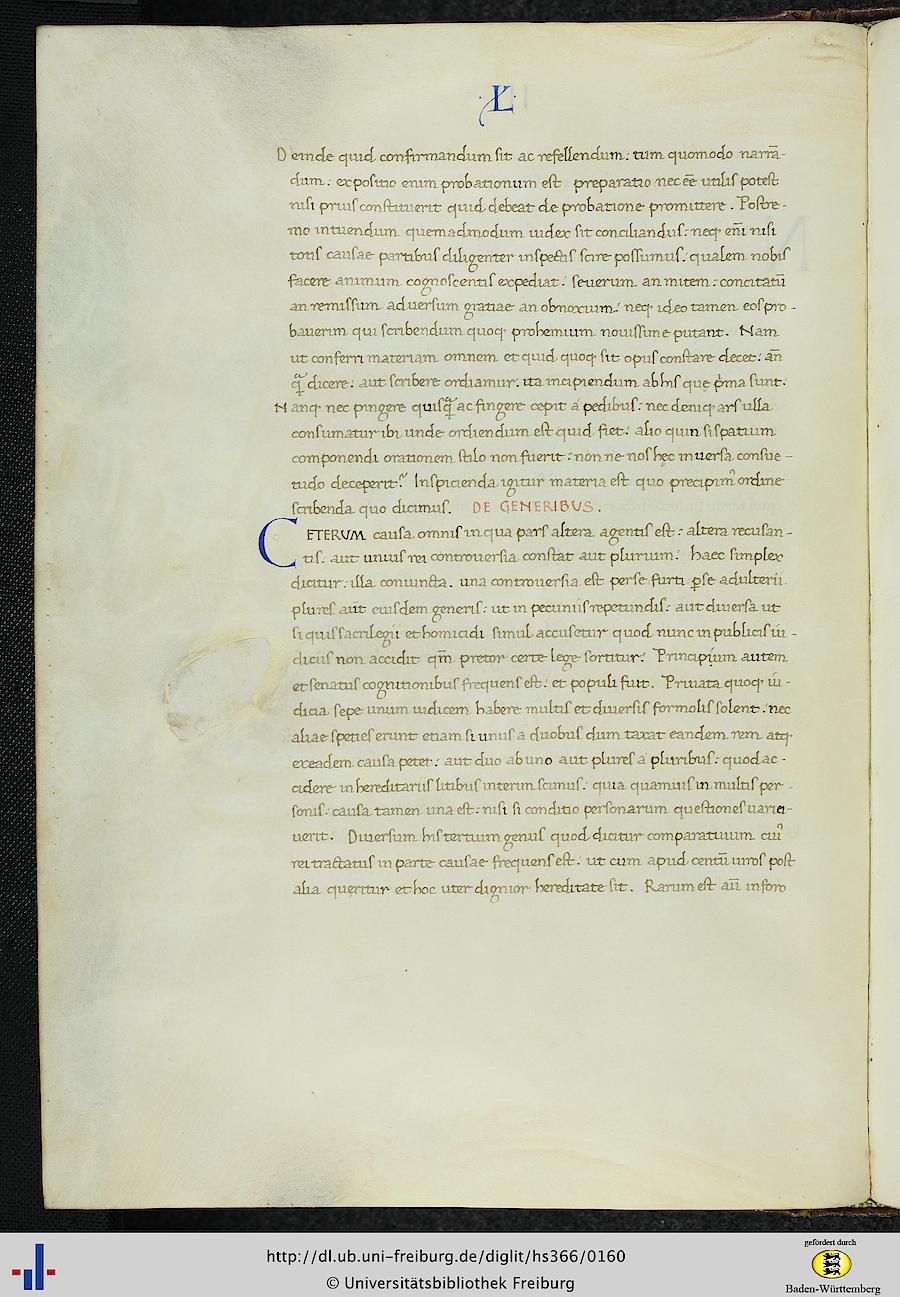 ·L·
Deinde quid confirmandum sit ac refellendum: tum quomodo narrā-
dum: expositio enim probationum est preparatio nec eē utilis potest
nisi prius constituerit quid debeat de probatione promittere. Postre-
mo intuendum quemadmodum iudex sit conciliandus: neq; enī nisi
totis causae partibus diligenter inspectis scire possumus: qualem nobis
facere animum cognoscentis expediat: seuerum an mitem: concitatū
an remissum aduersum gratiae an obnoxium: neq; ideo tamen eos pro-
bauerim qui scribendum quoq; prohemium nouissime putant. Nam
ut conferri materiam omnem et quid quoq; sit opus constare decet: añ
q̃ dicere: aut scribere ordiamur: ita incipiendum ab his quę p̄ma sunt:
Nanq; nec pingere quisq̃ ac fingere cepit a pedibus: nec deniq; ars ulla
consumatur ibi unde ordiendum est quid fiet: alio quin si spatium
componendi orationem stilo non fuerit: non ne nos hęc inuersa consue-
tudo deceperit? Inspicienda igitur materia est quo precipim᾽ ordine
scribenda quo dicimus. DE GENERIBUS.
CETERUM causa omnis in qua pars altera agentis est: altera recusan-
tis: aut unius rei controuersia constat aut plurium: haec simplex
dicitur: illa coniuncta. una controuersia est per se furti ꝑ se adulterii
plures aūt eiusdem generis: ut in pecuniis repetundis: aut diuersa ut
si quis sacrilegii et homicidi simul accusetur quod nunc in publicis iu-
diciis non accidit qm̄ pretor certe lege sortitur: Principium autem
et senatus cognitionibus frequens est: et populi fuit. Priuata quoq; iu-
dicia sepe unum iudicem habere multis et diuersis formolis solent: nec
aliae speties erunt etiam si unus a duobus dum taxat eandem rem atq;
ex eadem causa petet: aut duo ab uno aut plures a pluribus: quod ac-
cidere in hereditariis litibus interim scimus: quia quamuis in multis per-
sonis: causa tamen una est: nisi si conditio personarum questiones uaria-
uerit. Diuersum his tertium genus quod dicitur comparatiuum cui᾽
rei tractatus in parte causae frequens est: ut cum apud centū uiros post
alia quęritur et hoc uter dignior hereditate sit. Rarum est aūt in foro
http://dl.ub.uni-freiburg.de/diglit/hs366/0160
© Universitätsbibliothek Freiburg
gefördert durch
Baden-Württemberg